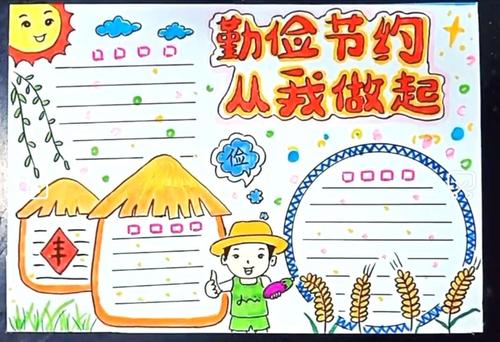 勤俭节约
从我做起
俭
丰